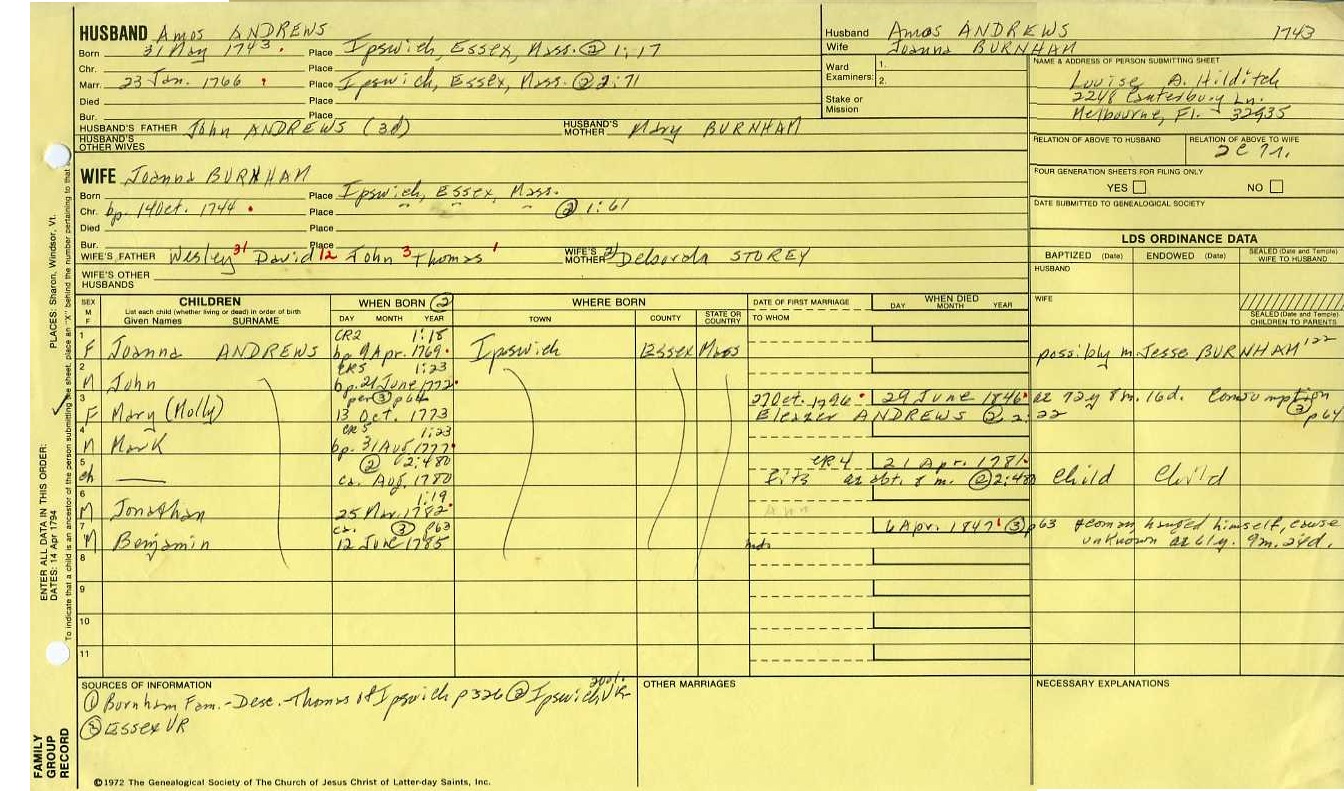 HUSBAND Amos ANDREWS
Born 31 May 1743. Place Ipswich, Essex, Mass. ② 1:17
Chr. Place
Marr. 23 Jan. 1766 Place Ipswich, Essex, Mass. ② 2:71
Died Place
Bur. Place
HUSBAND'S FATHER John ANDREWS (3d) HUSBAND'S MOTHER Mary BURNHAM
HUSBAND'S OTHER WIVES
Husband Amos ANDREWS 1743
Wife Joanna BURNHAM
Ward Examiners: 1.
2.
Stake or Mission
NAME & ADDRESS OF PERSON SUBMITTING SHEET
Louise A. Hilditch
2248 Canterbury Ln.
Melbourne, Fl. 32935
RELATION OF ABOVE TO HUSBAND RELATION OF ABOVE TO WIFE
FOUR GENERATION SHEETS FOR FILING ONLY
YES NO
DATE SUBMITTED TO GENEALOGICAL SOCIETY
WIFE Joanna BURNHAM
Born Place Ipswich, Essex, Mass.
Chr. bp. 14 Oct. 1744. Place ② 1:61
Died Place
Bur. Place
WIFE'S FATHER Wesley 31 David 12 John 3 Thomas 1 WIFE'S MOTHER Deborah STOREY
WIFE'S OTHER HUSBANDS
LDS ORDINANCE DATA
BAPTIZED (Date) ENDOWED (Date) SEALED (Date and Temple) WIFE TO HUSBAND
HUSBAND
WIFE
SEALED (Date and Temple) CHILDREN TO PARENTS
SEX M F CHILDREN WHEN BORN ② WHERE BORN DATE OF FIRST MARRIAGE WHEN DIED
List each child (whether living or dead) in order of birth
Given Names SURNAME DAY MONTH YEAR TOWN COUNTY STATE OR COUNTRY TO WHOM DAY MONTH YEAR
1 CR2 1:18
F Joanna ANDREWS bp 9 Apr. 1769. Ipswich Essex Mass possibly m Jesse BURNHAM 122
2 CR5 1:23
M John bp. 21 June 1772.
3 per ③ p64 27 Oct. 1796 29 June 1846 ae 72y 8m. 16d. Consumption ③ p64
F Mary (Molly) 13 Oct. 1773 Eleazer ANDREWS ② 2:22
4 CR5 1:23
M Mark bp. 31 Aug 1777.
5 ② 2:480 CR4 21 Apr. 1781.
ch — ca. Aug. 1780 fits ae abt. 8 m. ② 2:480 Child Child
6 1:19
M Jonathan 25 Mar. 1782.
7 ca. ③ p63 6 Apr. 1847 ③ p63 yeoman hanged himself, cause
M Benjamin 12 June 1785 unknown ae 61y. 9m. 24d.
8
9
10
11
SOURCES OF INFORMATION
① Burnham Fam.-Desc.-Thomas of Ipswich p326 ② Ipswich VR
③ Essex VR
OTHER MARRIAGES
NECESSARY EXPLANATIONS
©1972 The Genealogical Society of The Church of Jesus Christ of Latter-day Saints, Inc.
FAMILY GROUP RECORD
ENTER ALL DATA IN THIS ORDER:
DATES: 14 Apr 1794 PLACES: Sharon, Windsor, Vt.
To indicate that a child is an ancestor of the person submitting the sheet, place an "X" behind the number pertaining to that